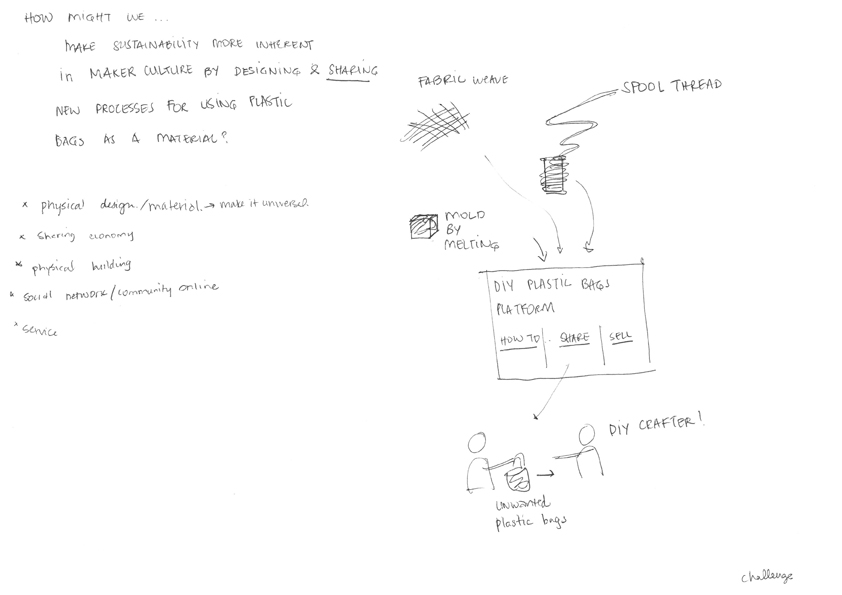 HOW MIGHT WE ...
MAKE SUSTAINABILITY MORE INHERENT
in MAKER CULTURE BY DESIGNING & SHARING
NEW PROCESSES FOR USING PLASTIC
BAGS AS A MATERIAL?
x physical design./material. → make it universal.
x Sharing economy
x physical building
x social network/community online
x service
FABRIC WEAVE
SPOOL THREAD
MOLD
BY
MELTING
DIY PLASTIC BAGS
PLATFORM
HOW TO
SHARE
SELL
DIY CRAFTER!
unwanted
plastic bags
challenge